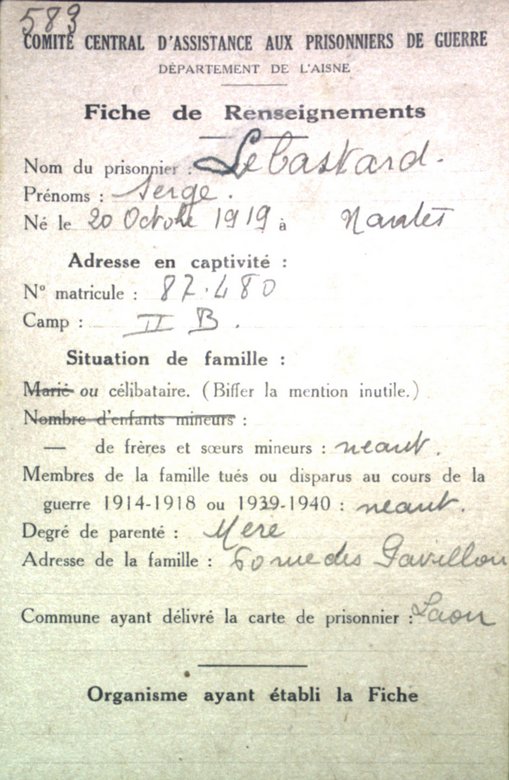 583
COMITÉ CENTRAL D'ASSISTANCE AUX PRISONNIERS DE GUERRE
DÉPARTEMENT DE L'AISNE
Fiche de Renseignements
Nom du prisonnier : Lebastard.
Prénoms : Serge.
Né le 20 Octobre 1919 à Nantes
Adresse en captivité :
N° matricule : 87.480
Camp : II B.
Situation de famille :
Marié ou célibataire. (Biffer la mention inutile.)
Nombre d'enfants mineurs :
— de frères et sœurs mineurs : neant.
Membres de la famille tués ou disparus au cours de la
guerre 1914-1918 ou 1939-1940 : neant.
Degré de parenté : Mere
Adresse de la famille : 60 rue des
Commune ayant délivré la carte de prisonnier : Laon
Organisme ayant établi la Fiche